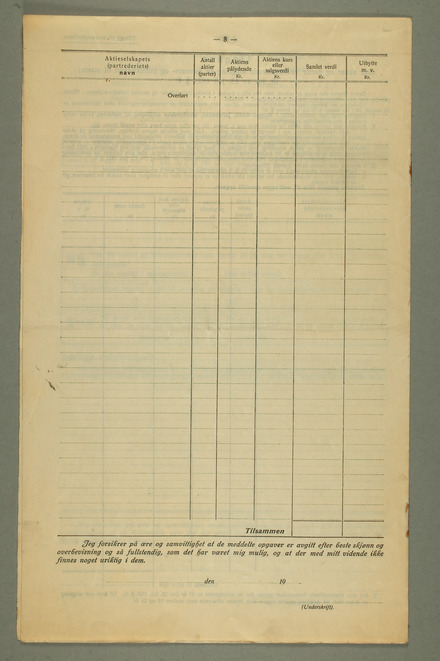 — 8 —
Aktieselskapets
(partrederiets)
navn
Antall
aktier
(parter)
Aktiens
pålydende
Kr.
Aktiens kurs
eller
salgsverdi
Kr.
Samlet verdi
Kr.
Utbytte
m. v.
Kr.
Overført
Tilsammen
Jeg forsikrer på ære og samvittighet at de meddelte opgaver er avgitt efter beste skjønn og
overbevisning og så fullstendig, som det har været mig mulig, og at der med mitt vidende ikke
finnes noget uriktig i dem.
den 19
(Underskrift).